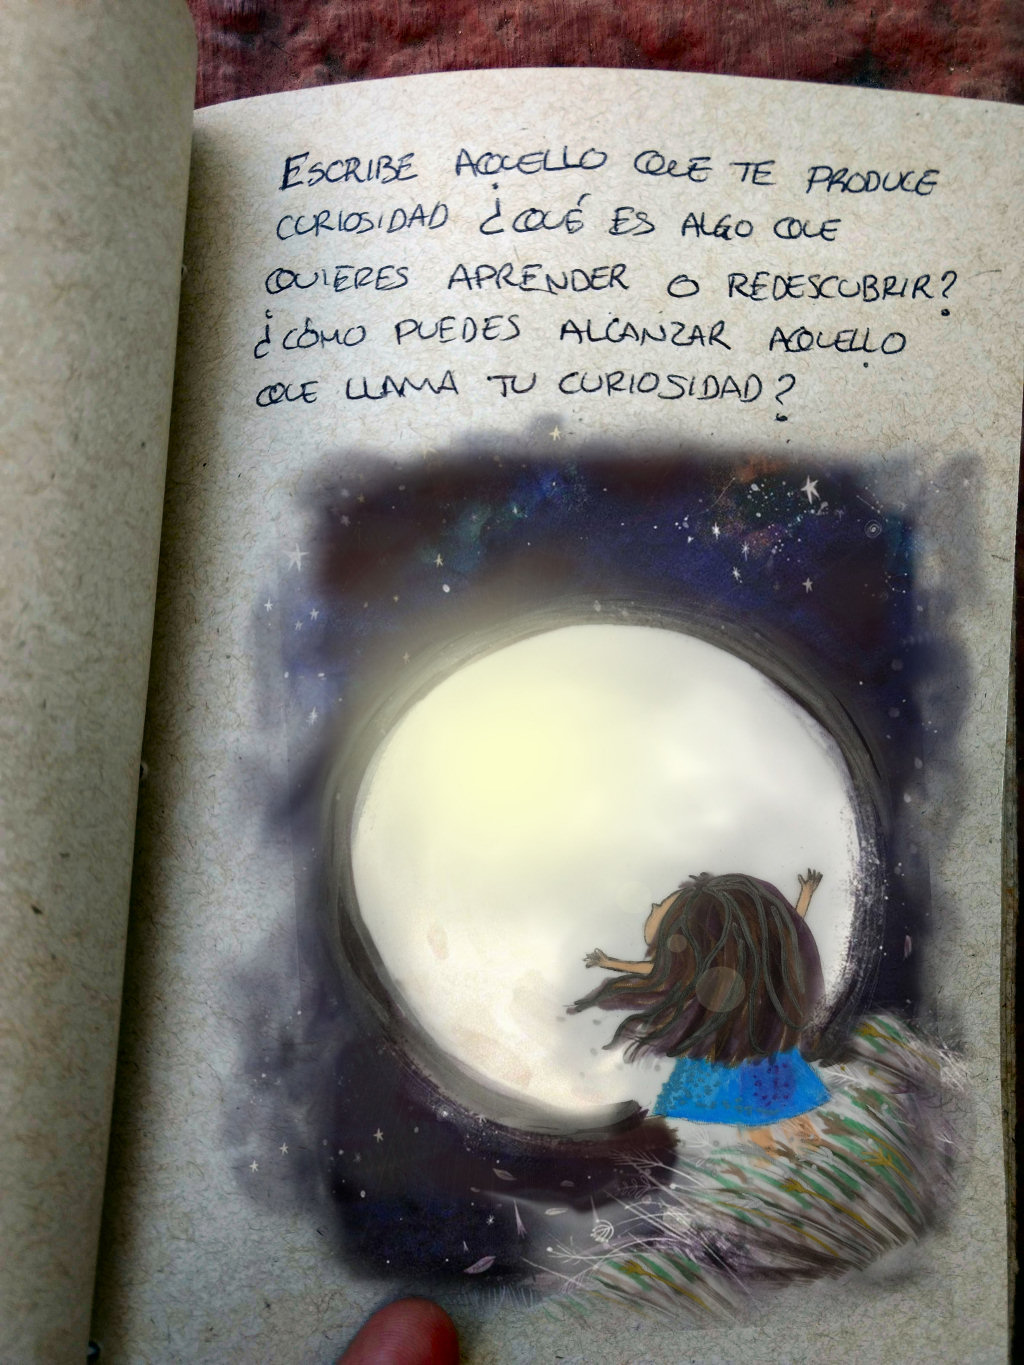 ESCRIBE AQUELLO QUE TE PRODUCE
CURIOSIDAD ¿QUÉ ES ALGO QUE
QUIERES APRENDER O REDESCUBRIR?
¿CÓMO PUEDES ALCANZAR AQUELLO
QUE LLAMA TU CURIOSIDAD?